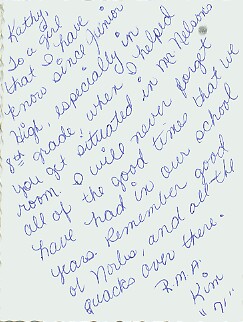 Kathy,
To a girl
that I have
know since Junior
High, especially in
8th grade, when I helped
you get situated in Mr. Nelsons
room. I will never forget
all of the good times that we
have had in our school
years. Remember good
ol Norbs, and all the
quacks over there.
R.M.A.
Kim
"71"